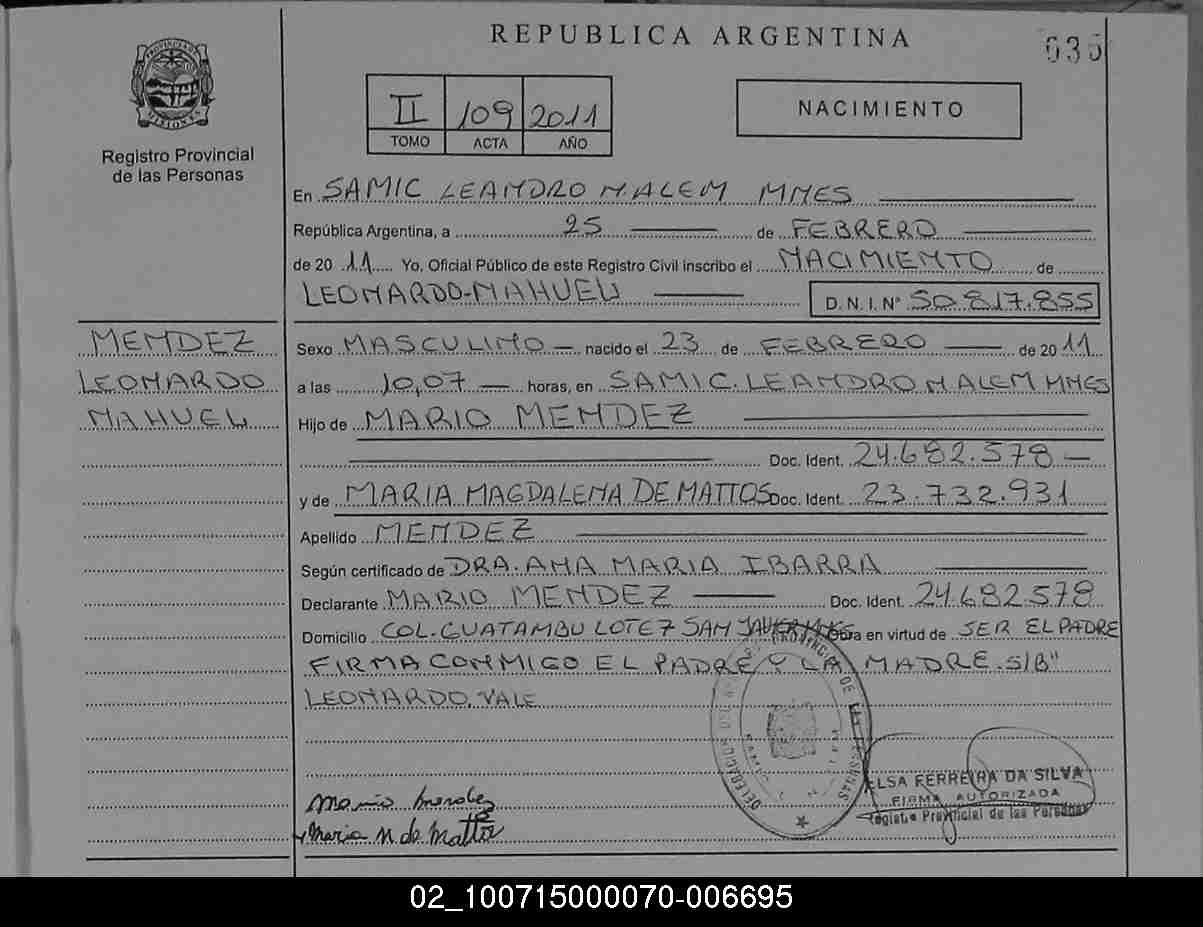 REPUBLICA ARGENTINA
635
PROVINCIA DE MISIONES
Registro Provincial
de las Personas
II 109 2011
TOMO ACTA AÑO
NACIMIENTO
En SAMIC LEANDRO N. ALEM MNES
República Argentina, a 25 de FEBRERO
de 2011 Yo, Oficial Público de este Registro Civil inscribo el NACIMIENTO de
LEONARDO-NAHUEL D.N.I. N° 50.817.855
MENDEZ
LEONARDO
NAHUEL
Sexo MASCULINO nacido el 23 de FEBRERO de 2011
a las 10,07 horas, en SAMIC. LEANDRO N ALEM MNES
Hijo de MARIO MENDEZ
Doc. Ident. 24.682.578
y de MARIA MAGDALENA DE MATTOS Doc. Ident. 23.732.931
Apellido MENDEZ
Según certificado de DRA. ANA MARIA IBARRA
Declarante MARIO MENDEZ Doc. Ident. 24.682.578
Domicilio COL. GUATAMBU LOTE 7 SAN JAVIER MNES Obra en virtud de SER EL PADRE
FIRMA CONMIGO EL PADRE Y LA MADRE. S/B"
LEONARDO. VALE
Mario Mendez
Maria M de Mattos
ELSA FERREIRA DA SILVA
FIRMA AUTORIZADA
Registro Provincial de las Personas
02_100715000070-006695